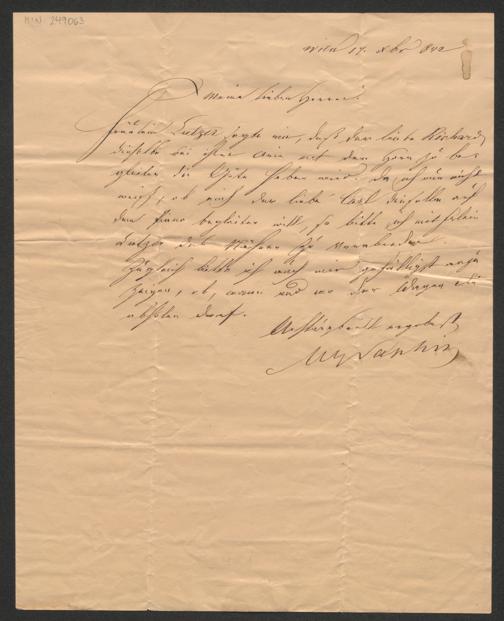 MN: 249063
Wien 17. Xbr 842
Meine lieben Herrn!
Fräulein Lutzer sagte mir, daß der liebe Richard
dieselbe bei ihrer Arie mit dem Horn zu be-
gleiten die Güte haben wird. Da ich nun nicht
weiß, ob auch der liebe Carl dieselbe auf
dem Piano begleiten will, so bitte ich mit Fräulein
Lutzer das Nähere zu verabreden.
Zugleich bitte ich auch mir gefälligst anzu-
zeigen, ob, wann und wo der Wagen Sie
abholen darf.
Achtungsvoll ergebenst